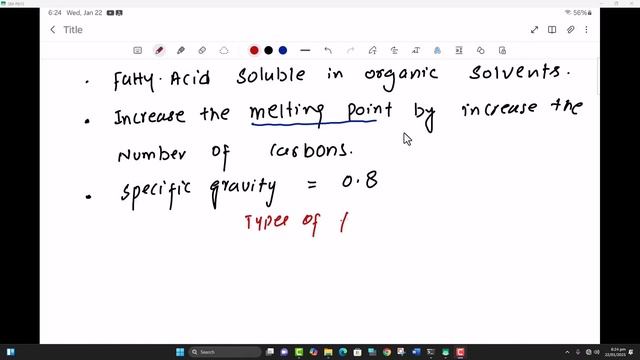 6:24 Wed, Jan 22
56%
Title
. Fatty.Acid soluble in organic solvents.
. Increase the melting point by increase the
Number of carbons.
. specific gravity = 0.8
Types of
Search
6:24 pm
22/01/2025